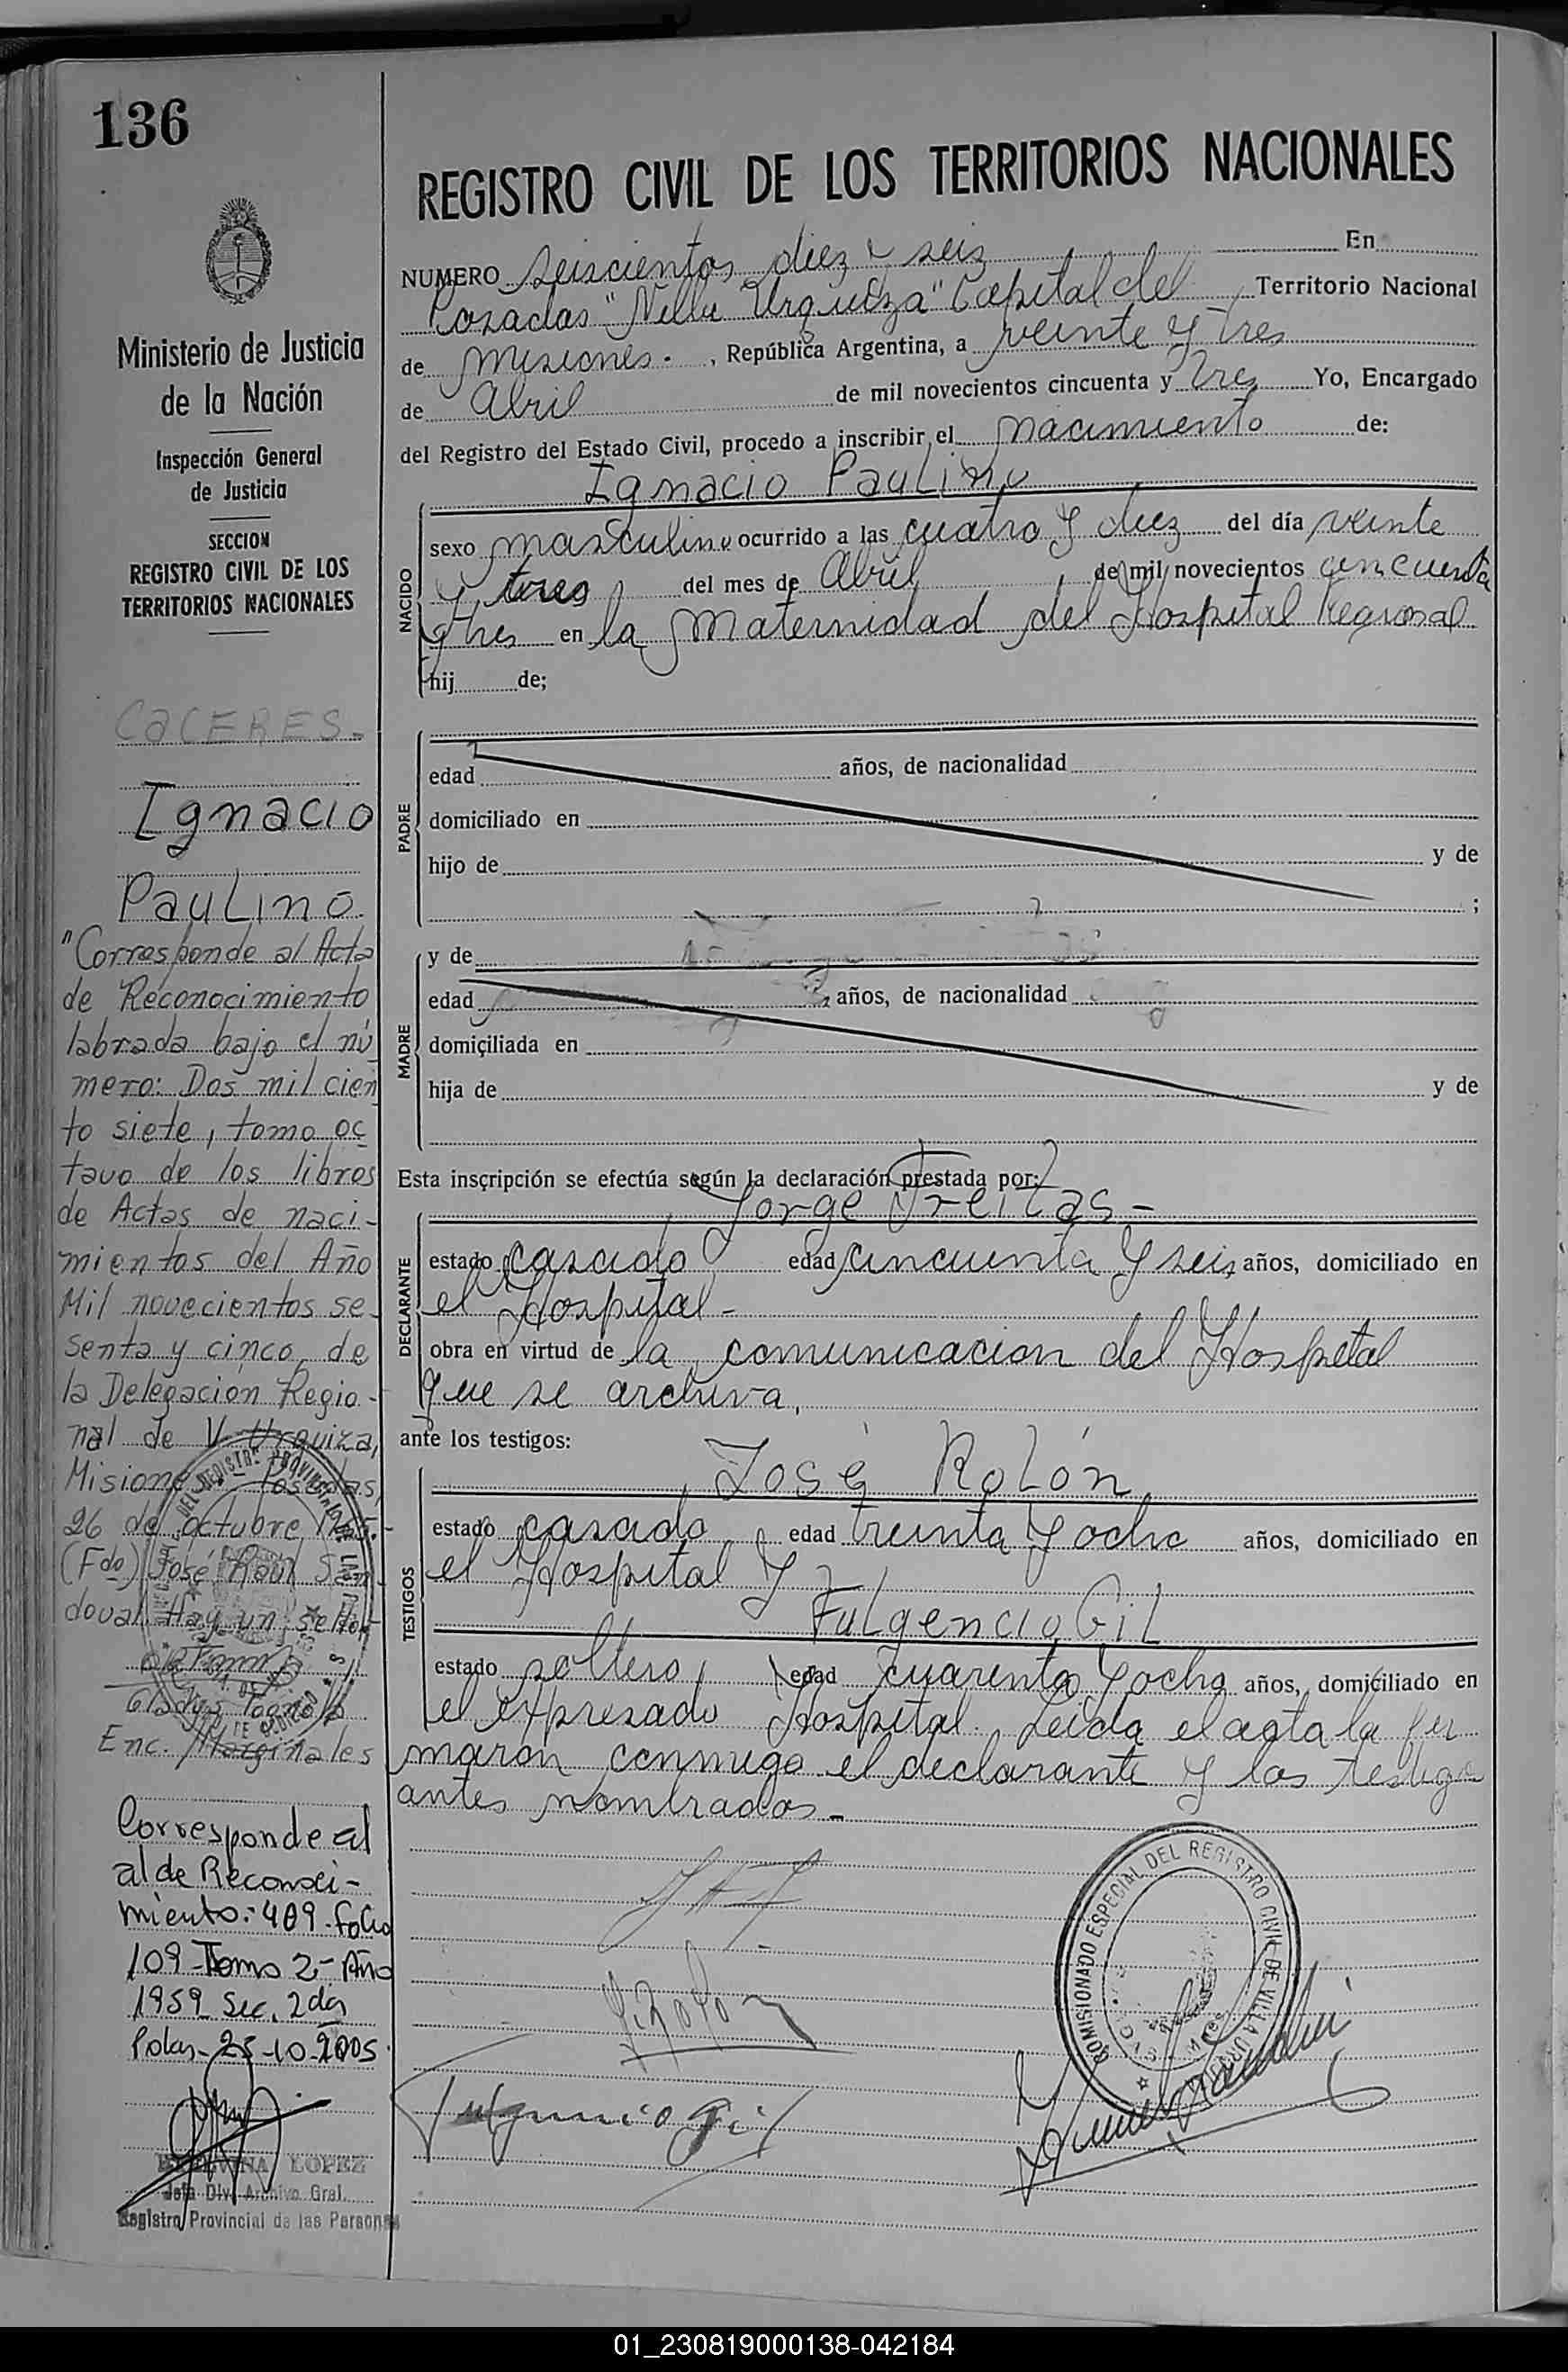 136
REGISTRO CIVIL DE LOS TERRITORIOS NACIONALES
NUMERO seiscientos diez y seis En
Posadas "Villa Urquiza" Capital del Territorio Nacional
de Misiones. , República Argentina, a veinte y tres
de Abril de mil novecientos cincuenta y tres Yo, Encargado
del Registro del Estado Civil, procedo a inscribir el nacimiento de:
Ignacio Paulino
NACIDO
sexo masculino ocurrido a las cuatro y diez del día veinte
y tres del mes de Abril de mil novecientos cincuenta
y tres en la Maternidad del Hospital Regional
hij de;
PADRE
edad años, de nacionalidad
domiciliado en
hijo de y de
;
MADRE
y de
edad años, de nacionalidad
domiciliada en
hija de y de
Esta inscripción se efectúa según la declaración prestada por:
Jorge Freitas -
DECLARANTE
estado casado edad cincuenta y seis años, domiciliado en
el Hospital -
obra en virtud de la comunicacion del Hospital
que se archiva,
ante los testigos:
José Rolón
TESTIGOS
estado casado edad treinta y ocho años, domiciliado en
el Hospital y
Fulgencio Gil
estado soltero, edad cuarenta y ocho años, domiciliado en
el expresado Hospital. Leida el acta la fir
maron conmigo el declarante y los testigos
antes nombrados -
Fulgencio Gil
COMISIONADO ESPECIAL DEL REGISTRO CIVIL DE VILLA URQUIZA
Ministerio de Justicia
de la Nación
Inspección General
de Justicia
SECCION
REGISTRO CIVIL DE LOS
TERRITORIOS NACIONALES
CACERES -
Ignacio
Paulino
"Corresponde al Acta
de Reconocimiento
labrada bajo el nú
mero: Dos mil cien
to siete, tomo oc
tavo de los libros
de Actas de naci-
mientos del Año
Mil novecientos se-
senta y cinco, de
la Delegacion Regio-
nal de V. Urquiza,
Misiones Posadas,
26 de octubre 1965.-
(Fdo) José Raúl San
doval. Hay un sello-
Enc. Marginales
Corresponde al
al de Reconoci-
miento: 409 - folio
109 - Tomo 2 - Año
1959 Sec. 2da
Pdas - 25-10-2005
LOPEZ
Jefa Div. Archivo Gral.
Registro Provincial de las Personas
01_230819000138-042184